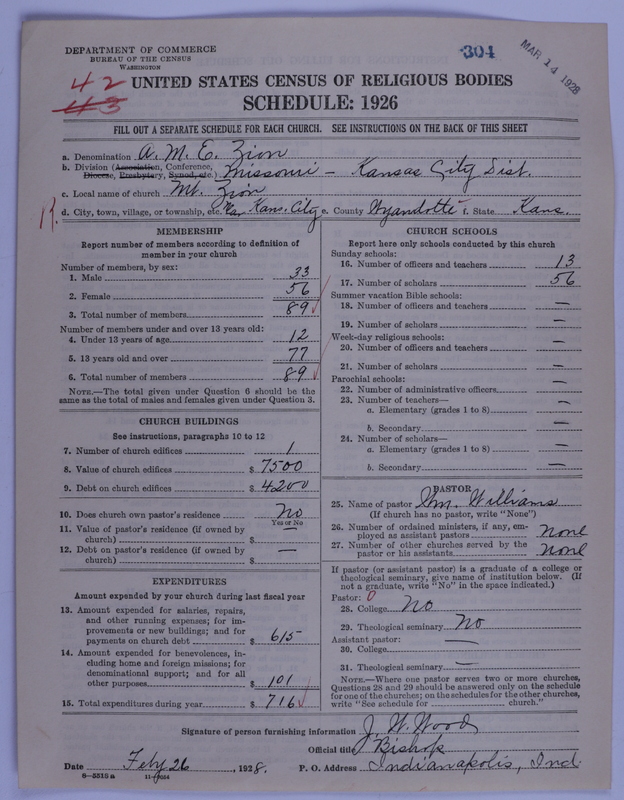 DEPARTMENT OF COMMERCE
BUREAU OF THE CENSUS
WASHINGTON
304
MAR 14 1928
42
43
UNITED STATES CENSUS OF RELIGIOUS BODIES
SCHEDULE: 1926
FILL OUT A SEPARATE SCHEDULE FOR EACH CHURCH. SEE INSTRUCTIONS ON THE BACK OF THIS SHEET
a. Denomination A. M. E. Zion
b. Division (Association, Conference, Diocese, Presbytery, Synod, etc.) Missouri - Kansas City Dist.
c. Local name of church Mt. Zion
d. City, town, village, or township, etc. Kans. City e. County Wyandotte f. State Kans.
MEMBERSHIP
Report number of members according to definition of
member in your church
Number of members, by sex:
1. Male 33
2. Female 56
3. Total number of members 89
Number of members under and over 13 years old:
4. Under 13 years of age 12
5. 13 years old and over 77
6. Total number of members 89
NOTE.—The total given under Question 6 should be the
same as the total of males and females given under Question 3.
CHURCH BUILDINGS
See instructions, paragraphs 10 to 12
7. Number of church edifices 1
8. Value of church edifices $ 7500
9. Debt on church edifices $ 4200
10. Does church own pastor's residence No
Yes or No
11. Value of pastor's residence (if owned by
church) $ —
12. Debt on pastor's residence (if owned by
church) $ —
EXPENDITURES
Amount expended by your church during last fiscal year
13. Amount expended for salaries, repairs,
and other running expenses; for im-
provements or new buildings; and for
payments on church debt $ 615
14. Amount expended for benevolences, in-
cluding home and foreign missions; for
denominational support; and for all
other purposes $ 101
15. Total expenditures during year $ 716
CHURCH SCHOOLS
Report here only schools conducted by this church
Sunday schools:
16. Number of officers and teachers 13
17. Number of scholars 56
Summer vacation Bible schools:
18. Number of officers and teachers —
19. Number of scholars —
Week-day religious schools:
20. Number of officers and teachers —
21. Number of scholars —
Parochial schools:
22. Number of administrative officers —
23. Number of teachers—
a. Elementary (grades 1 to 8) —
b. Secondary —
24. Number of scholars—
a. Elementary (grades 1 to 8) —
b. Secondary —
PASTOR
25. Name of pastor Wm. Williams
(If church has no pastor, write "None")
26. Number of ordained ministers, if any, em-
ployed as assistant pastors None
27. Number of other churches served by the
pastor or his assistants None
If pastor (or assistant pastor) is a graduate of a college or
theological seminary, give name of institution below. (If
not a graduate, write "No" in the space indicated.)
Pastor: 0
28. College No
29. Theological seminary No
Assistant pastor:
30. College —
31. Theological seminary —
NOTE.—Where one pastor serves two or more churches,
Questions 28 and 29 should be answered only on the schedule
for one of the churches; on the schedules for the other churches,
write "See schedule for church."
Signature of person furnishing information J. W. Wood
Official title Bishop
Date Feby 26, 1928. P. O. Address Indianapolis, Ind.
8—5515a